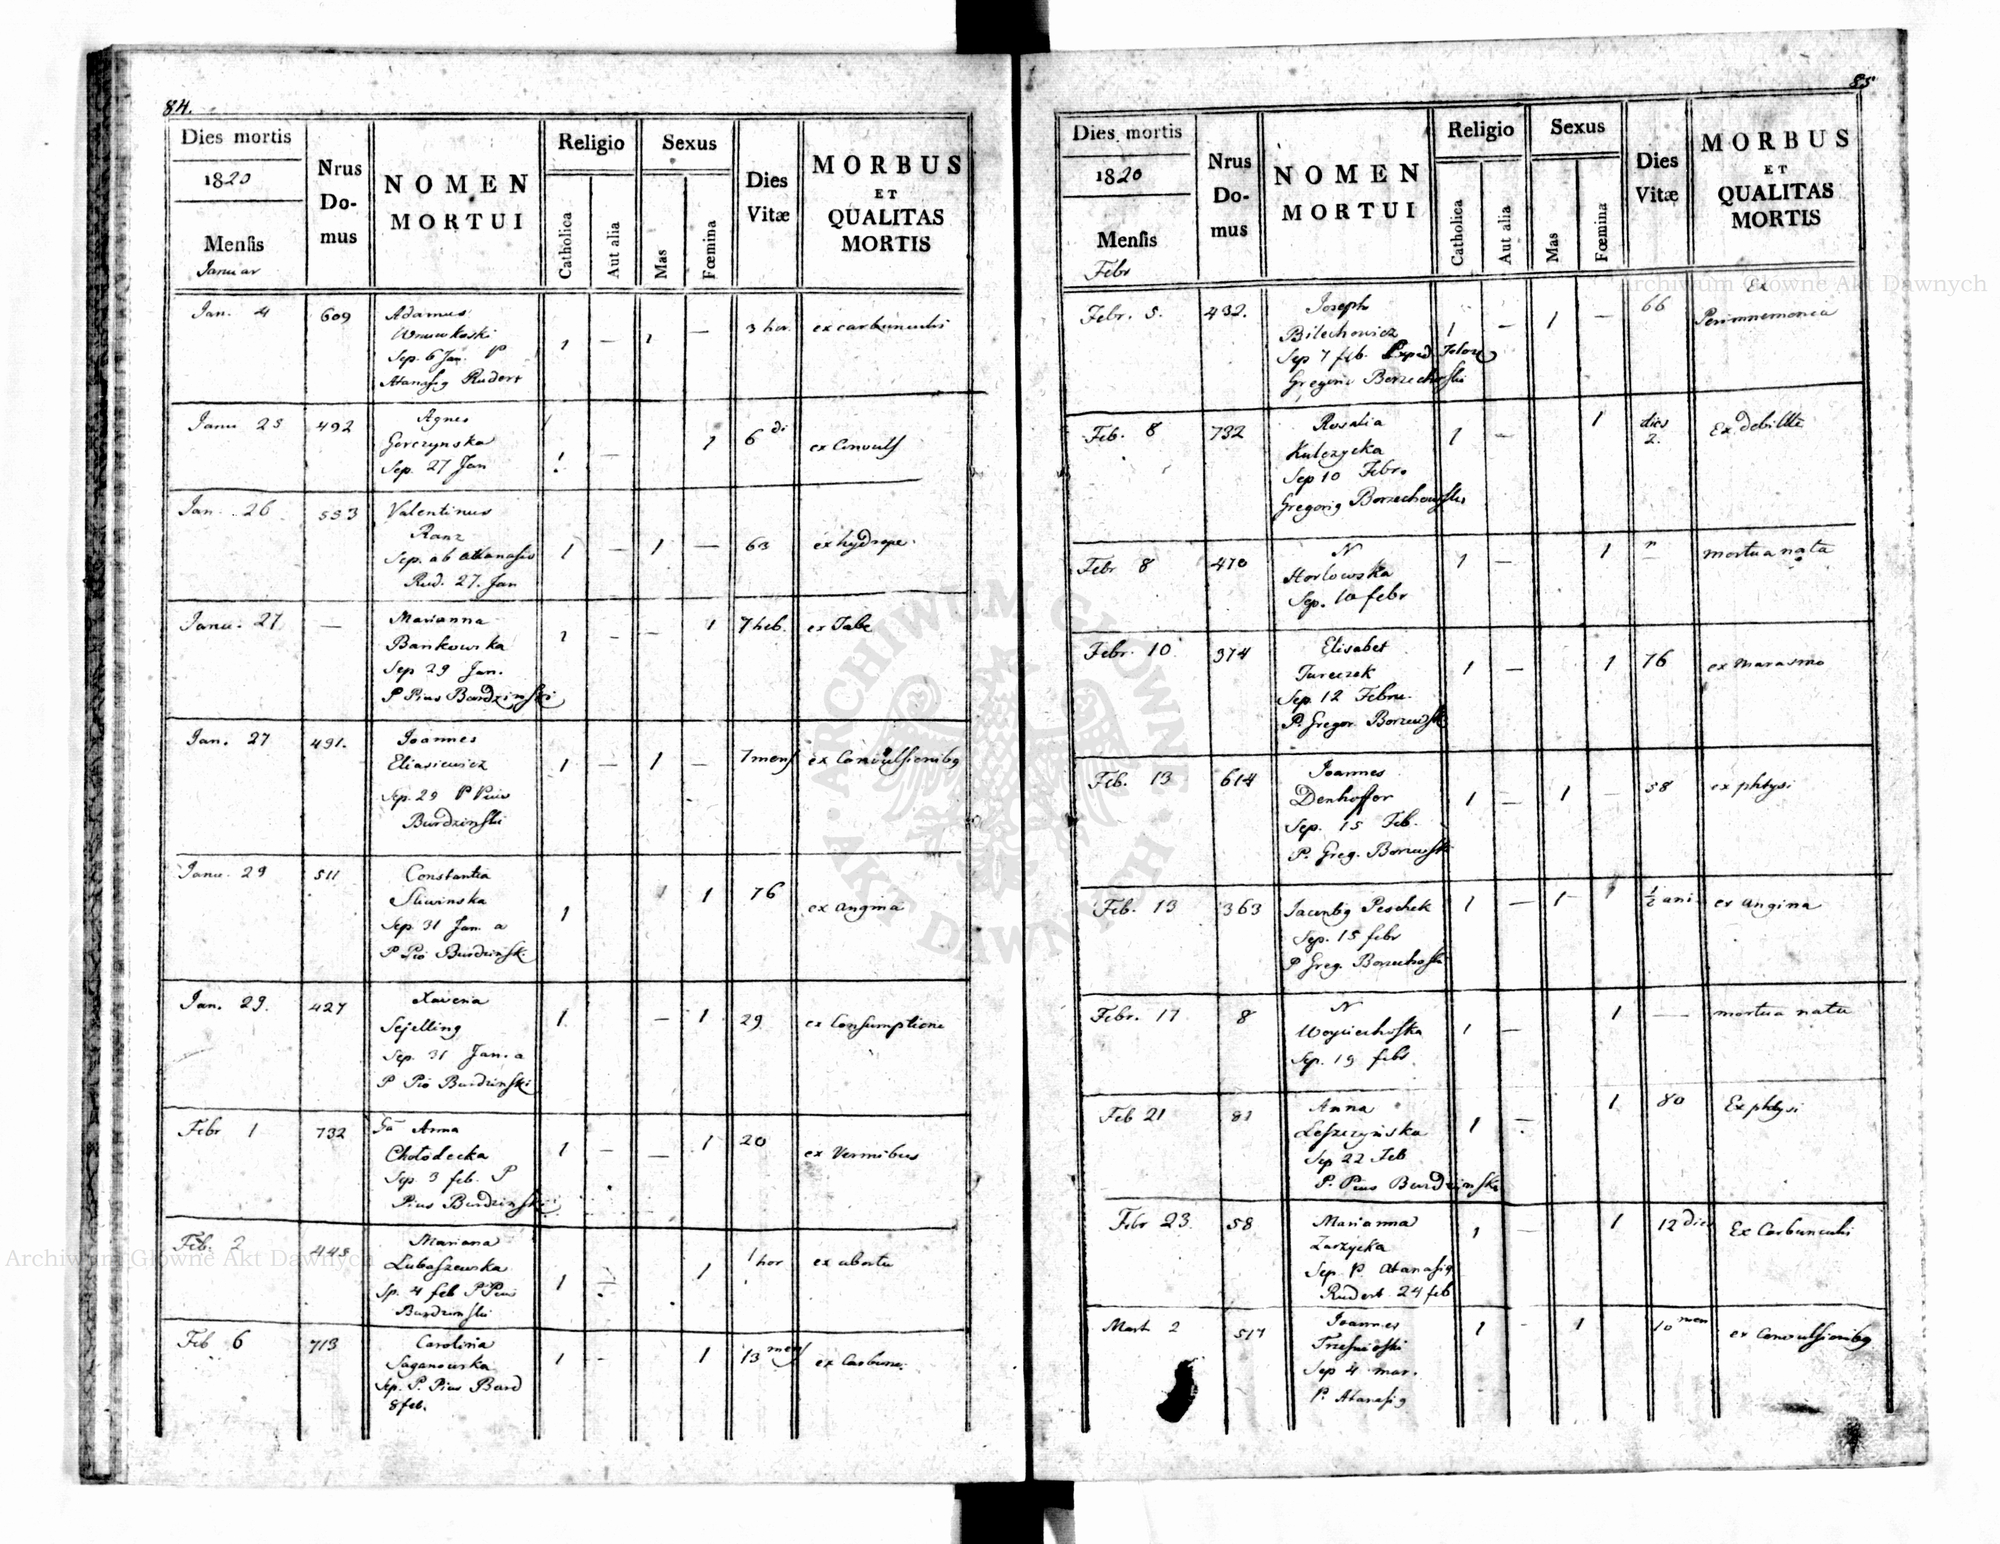 84.
Dies mortis
1820
Mensis
Januar
Nrus
Do-
mus
NOMEN
MORTUI
Religio
Catholica
Aut alia
Sexus
Mas
Fœmina
Dies
Vitæ
MORBUS
ET
QUALITAS
MORTIS
Jan. 4 609 Adamus 1 — 1 — 3 hor. ex carbunculi
Sep. 6 Jan. P
Atanasig Rudert
Janu 25 492 Agnes 1 — 1 6 di ex Convuls
Gorczynska
Sep. 27 Jan
Jan. 26 553 Valentinus 1 — 1 — 63 ex hydrope.
Ranz
Sep. ab Athanasio
Rud. 27. Jan
Janu. 27 — Marianna 1 - — 1 7 heb. ex Tabe
Bankowska
Sep 29 Jan.
P Pius Burdzinski
Jan. 27 491. Joannes 1 — 1 — 7 mens ex Convulsionibg
Eliasiewicz
Sep. 29 P Pius
Burdzinski
Janu. 29 511 Constantia 1 1 76 ex angina
Sliwinska
Sep. 31 Jan. a
P Pio Burdzinsk.
Jan. 29. 427 Xaveria 1 — 1 29 ex Consumptione
Sejelling
Sep. 31 Jan. a
P Pio Burdzinski
Febr 1 732 Gã Anna 1 — — 1 20 ex Vermibus
Chołodecka
Sep. 3 feb. P
Pius Burdzinski
Feb. 2 445 Mariana 1 — 1 1 hor ex abortu
Lubaszewska
Sp. 4 feb P Pius
Burdzinski
Feb 6 713 Carolina 1 - 1 13 mens ex Carbunc.
Saganowska
Sep. P. Pius Burd
8 feb.
85
Dies mortis
1820
Mensis
Febr
Nrus
Do-
mus
NOMEN
MORTUI
Religio
Catholica
Aut alia
Sexus
Mas
Fœmina
Dies
Vitæ
MORBUS
ET
QUALITAS
MORTIS
Febr. 5. 432. Joseph 1 — 1 — 66 Ex
Bilechowicz
Sep 7 feb.
Gregori Borzechoski
Feb. 8 732 Rosalia 1 — 1 dies 2. Ex debilite
Kulczycka
Sep 10 Febr.
Gregorig Borzechowski
Febr 8 470 N 1 — 1 mortua nata
Horlowska
Sep. 10 febr
Febr. 10 374 Elisabet 1 — 1 76 ex Marasmo
Tureczek
Sep. 12 Febru.
P. Gregor. Borzewsk
Feb. 13 614 Joannes 1 — 1 — 58 ex phtysi
Denhoffer
Sep. 15 Feb.
P. Greg. Borzewski
Feb. 13 363 Jacentig Peschek 1 — 1 ½ ani ex angina
Sep. 15 febr
P Greg. Borzechoski
Febr. 17 8 N 1 — 1 — mortua nata
Woyciechoska
Sep. 19 febr.
Feb 21 81 Anna 1 — 1 80 Ex phtysi
Leszczyńska
Sep 22 Feb
P. Pius Burdzinski
Febr 23. 58 Marianna 1 — 1 12 dies Ex Carbunculi
Zarzycka
Sep P. Atanasig
Rudert 24 feb
Mart 2 517 Joannes 1 - 1 10 men ex Convulsionibg
Sep 4 mar.
P. Atanasig
Archiwum Główne Akt Dawnych
Archiwum Główne Akt Dawnych
ARCHIWUM GŁÓWNE AKT DAWNYCH